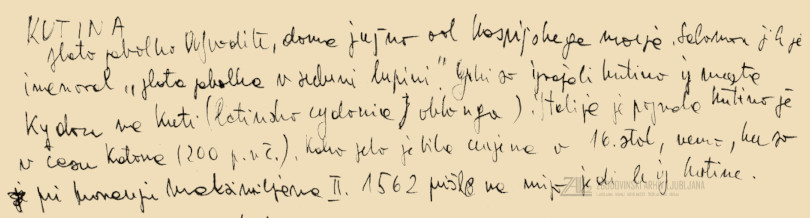 KUTINA
zlato jabolko Afrodite, doma južno od kaspijskega morja. Salomon jih je
imenoval "zlata jabolka v srebrni lupini". Grki so izvažali kutino iz mesta
Kydon na Kreti (latinsko cydonia oblonga). Italija je poznala kutino že
v času Katona (200 p.n.č.). Kako zelo je bila cenjena v 16. stol, vemo, ko so
pri kronanju Maksimiljana II. 1562 prišle na mizo jedi le iz kutine.
ZGODOVINSKI ARHIV LJUBLJANA